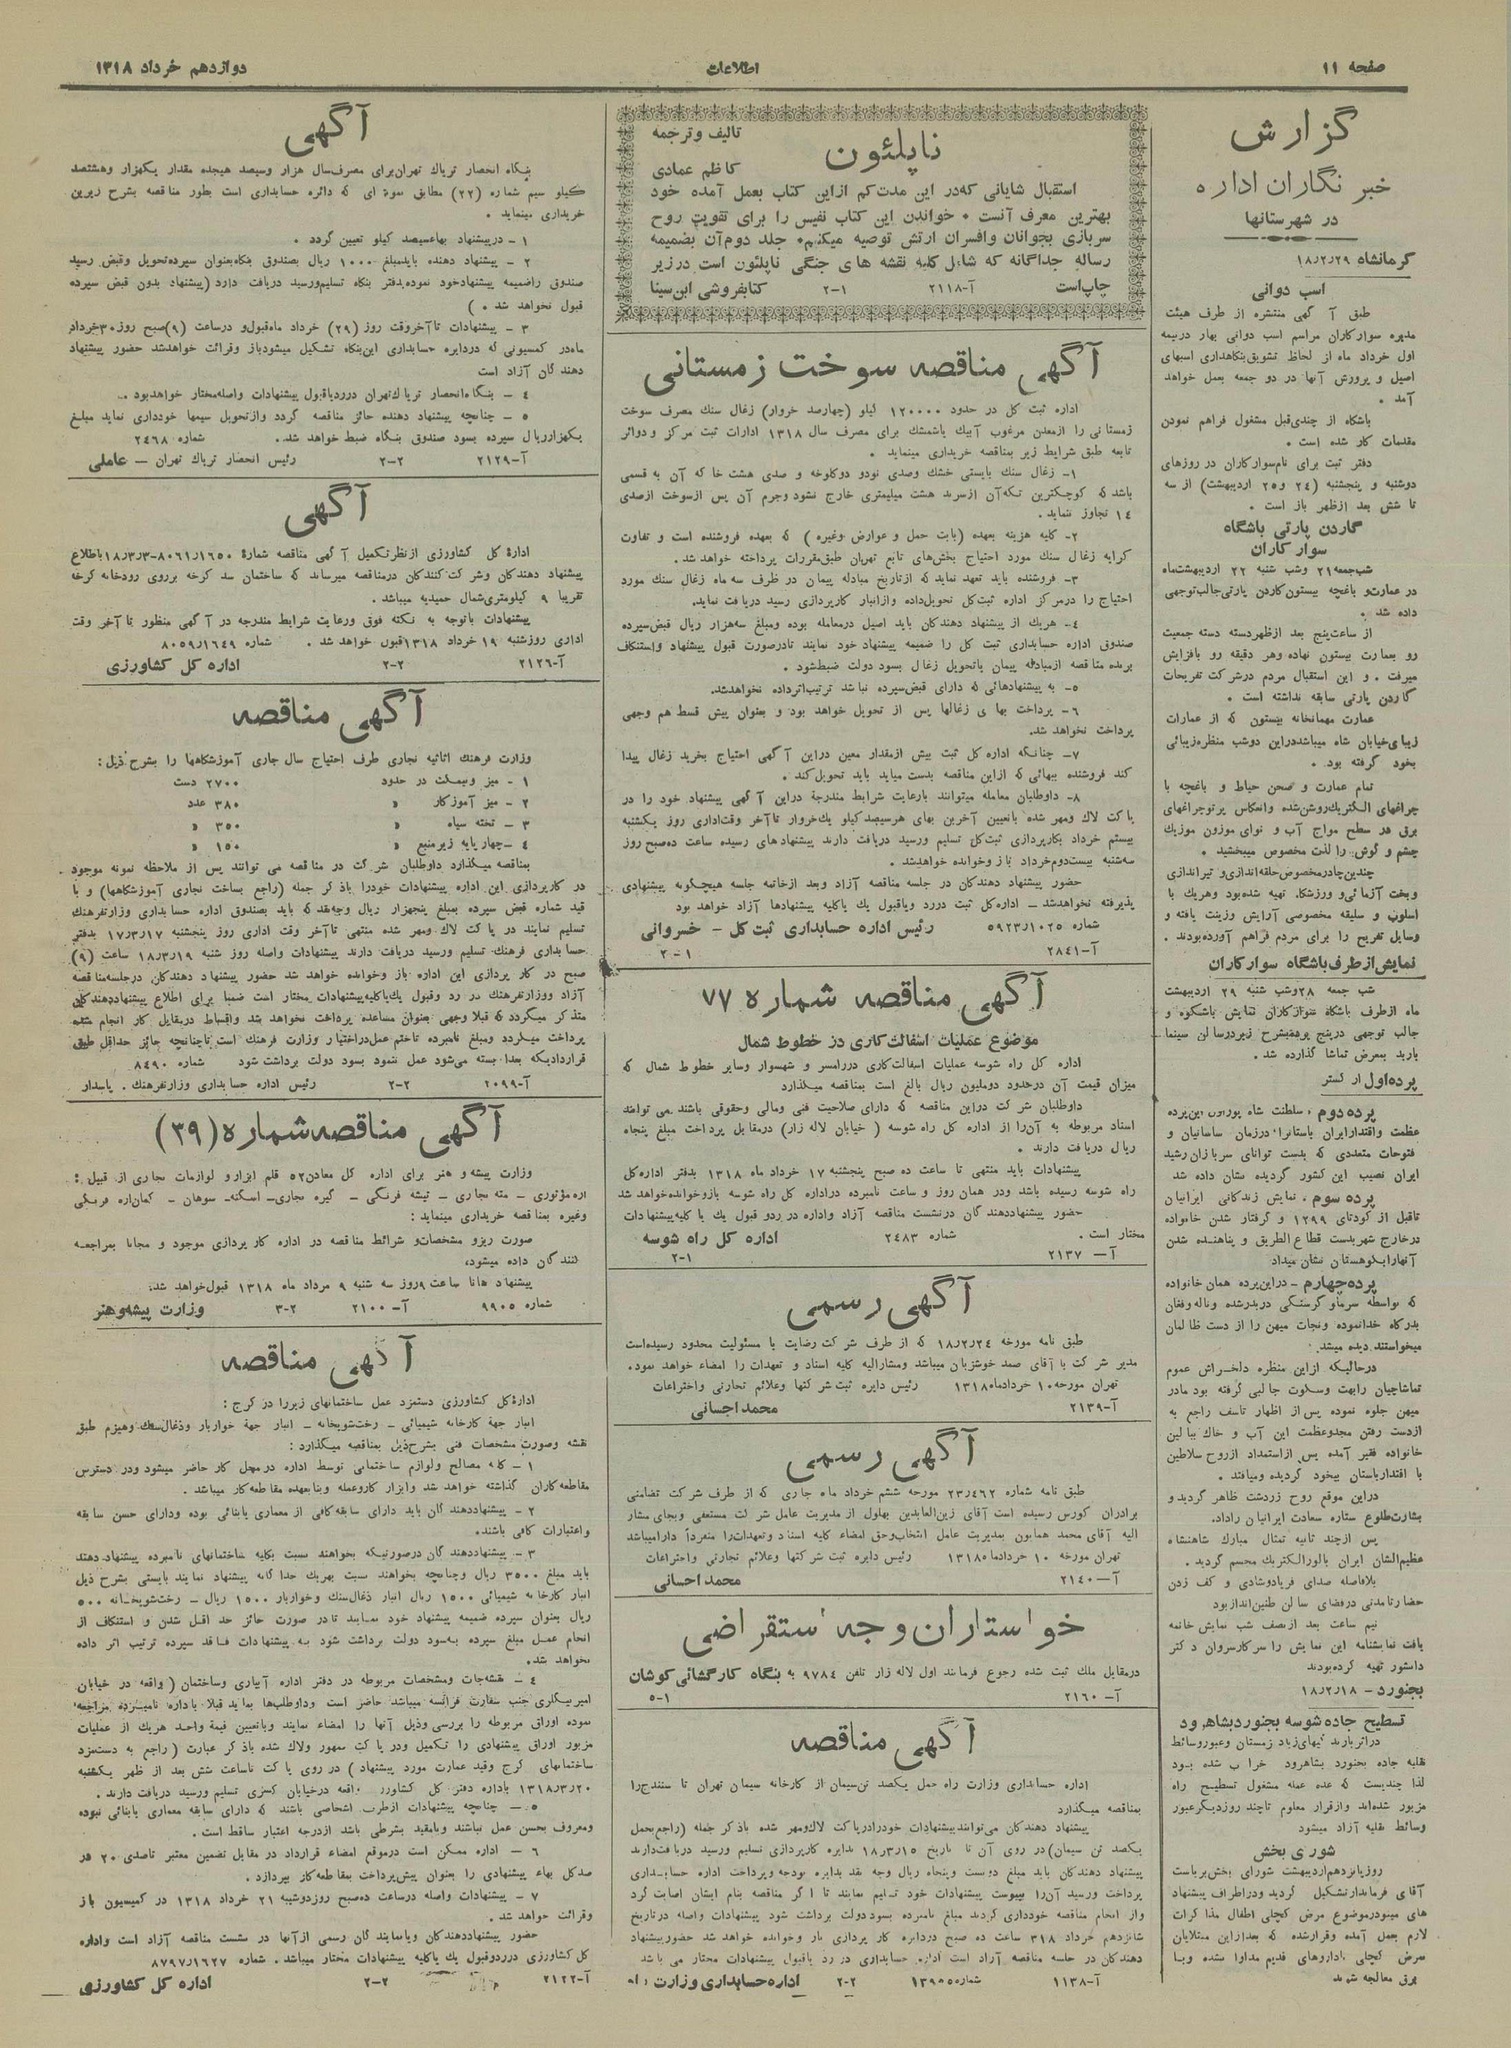 صفحه ۱۱
اطلاعات
دوازدهم خرداد ۱۳۱۸
گزارش
خبر نگاران اداره
در شهرستانها
کرمانشاه ۱۸٫۲٫۲۹
اسب دوانی
طبق آگهی منتشره از طرف هیئت
مدیره سوارکاران مراسم اسب دوانی بهار در نیمه
اول خرداد ماه از لحاظ تشویق بنگاهداری اسبهای
اصیل و پرورش آنها در دو جمعه بعمل خواهد
آمد .
باشگاه از چندی قبل مشغول فراهم نمودن
مقدمات کار شده است .
دفتر ثبت برای نام سوارکاران در روزهای
دوشنبه و پنجشنبه (۲۴ و ۲۵ اردیبهشت) از سه
تا شش بعد ازظهر باز است .
گاردن پارتی باشگاه
سوارکاران
شب جمعه ۲۱ وشب شنبه ۲۲ اردیبهشت ماه
در عمارت و باغچه بیستون گاردن پارتی جالب توجهی
داده شد .
از ساعت پنج بعد ازظهر دسته دسته جمعیت
رو بعمارت بیستون نهاده وهر دقیقه رو بافزایش
میرفت . و این استقبال مردم درشرکت تفریحات
گاردن پارتی سابقه نداشته است .
عمارت مهمانخانه بیستون که از عمارات
زیبای خیابان شاه میباشد دراین دوشب منظره زیبائی
بخود گرفته بود .
تمام عمارت و صحن حیاط و باغچه با
چراغهای الکتریک روشن شده وانعکاس پرتو چراغهای
برق در سطح مواج آب و نوای موزون موزیک
چشم و گوش را لذت مخصوص میبخشید .
چندین چادر مخصوص حلقه اندازی و تیر اندازی
وبخت آزمائی و ورزشکا. تهیه شده بود وهریک با
اسلوب و سلیقه مخصوصی آرایش وزینت یافته و
وسایل تفریح را برای مردم فراهم آورده بودند .
نمایش از طرف باشگاه سوارکاران
شب جمعه ۲۸ وشب شنبه ۲۹ اردیبهشت
ماه ازطرف باشگاه سوارکاران نمایش باشکوه و
جالب توجهی درپنج پرده بشرح زیر درسالن سینما
پارید بمعرض تماشا گذارده شد .
پرده اول ار کستر
پرده دوم ، سلطنت شاه پور اول این پرده
عظمت واقتدار ایران باستانرا درزمان ساسانیان و
فتوحات متعددی که بدست توانای سربازان رشید
ایران نصیب این کشور گردیده نشان داده شد
پرده سوم ، نمایش زندگانی ایرانیان
تاقبل از کودتای ۱۲۹۹ و گرفتار شدن خانواده
درخارج شهر بدست قطاع الطریق و پناهنده شدن
آنها را بکوهستان نشان میداد
پرده چهارم – دراین پرده همان خانواده
که بواسطه سرما و گرسنگی دربدر شده و ناله و فغان
بدرگاه خدا نموده ونجات میهن را از دست ظالمان
میخواستند دیده میشد.
درحالیکه ازاین منظره دلخراش عموم
تماشاچیان رابهت وسکوت جالبی گرفته بود مادر
میهن جلوه نموده پس از اظهار تاسف راجع به
ازدست رفتن مجد وعظمت این آب و خاک ببالین
خانواده فقیر آمده پس از استمداد از روح سلاطین
با اقتدار باستان بیخود گردیده ومیافتد .
دراین موقع روح زردشت ظاهر گردید و
بشارت طلوع ستاره سعادت ایرانیان راداد.
پس ازچند ثانیه تمثال مبارک شاهنشاه
عظیم الشان ایران بالورالکتریک مجسم گردید .
بلافاصله صدای فریاد و شادی و کف زدن
حضار تا مدتی درفضای سالن طنین انداز بود
نیم ساعت بعد از نصف شب نمایش خاتمه
یافت نمایشنامه این نمایش را سرکار سروان دکتر
دانشور تهیه کرده بودند
بجنورد – ۱۸٫۲٫۱۸
تسطیح جاده شوسه بجنورد بشاهرود
دراثر بارندگیهای زیاد زمستان وعبور وسائط
نقلیه جاده بجنورد بشاهرود خراب شده بود
لذا چندیست که عده عمله مشغول تسطیح راه
مزبور شده اند و از قرار معلوم تا چند روز دیگر عبور
وسائط نقلیه آزاد میشود
شورای بخش
روز پانزدهم اردیبهشت شورای بخش بریاست
آقای فرماندار تشکیل گردید ودراطراف پیشنهاد
های مینو در موضوع مرض کچلی اطفال مذاکرات
لازم بعمل آمده وقرار شده که بعد از این مبتلایان
مرض کچلی باداروهای قدیم مداوا نشده وبا
برق معالجه شوند
ناپلئون
تالیف و ترجمه
کاظم عمادی
استقبال شایانی که در این مدت کم از این کتاب بعمل آمده خود
بهترین معرف آنست ٠ خواندن این کتاب نفیس را برای تقویت روح
سربازی بجوانان وافسران ارتش توصیه میکنیم٠ جلد دوم آن بضمیمه
رساله جداگانه که شامل کلیه نقشه های جنگی ناپلئون است در زیر
چاپ است آ-۲۱۱۸ ۲-۱ کتابفروشی ابن سینا
آگهی مناقصه سوخت زمستانی
اداره ثبت کل در حدود ۱۲۰۰۰۰ کیلو (چهارصد خروار) زغال سنگ مصرف سوخت
زمستانی را از معدن مرغوب آبیک یا شمشک برای مصرف سال ۱۳۱۸ ادارات ثبت مرکز و دوائر
تابعه طبق شرایط زیر بمناقصه خریداری مینماید .
۱– زغال سنگ بایستی خشک وصدی نود و دو کلوخه و صدی هشت خاکه آن به قسمی
باشد که کوچکترین تکه آن از سرند هشت میلیمتری خارج نشود وجرم آن پس از سوخت از صدی
۱۴ تجاوز ننماید .
۲– کلیه هزینه بعهده (بابت حمل و عوارض وغیره) که بعهده فروشنده است و تفاوت
کرایه زغال سنگ مورد احتیاج بخش های تابع تهران طبق مقررات پرداخته خواهد شد .
۳– فروشنده باید تعهد نماید که ازتاریخ مبادله پیمان در ظرف سه ماه زغال سنگ مورد
احتیاج را درمرکز اداره ثبت کل تحویل داده واز انبار کارپردازی رسید دریافت نماید.
۴– هریک از پیشنهاد دهندگان باید اصیل درمعامله بوده ومبلغ سه هزار ریال قبض سپرده
صندوق اداره حسابداری ثبت کل را ضمیمه پیشنهاد خود نمایند تادرصورت قبول پیشنهاد و استنکاف
برنده مناقصه ازمبادله پیمان یا تحویل زغال بسود دولت ضبط شود .
۵– به پیشنهادهائی که دارای قبض سپرده نباشد ترتیب اثر داده نخواهد شد.
۶– پرداخت بهای زغالها پس از تحویل خواهد بود و بعنوان پیش قسط هم وجهی
پرداخت نخواهد شد.
۷– چنانکه اداره کل ثبت بیش از مقدار معین دراین آگهی احتیاج بخرید زغال پیدا
کند فروشنده ببهائی که ازاین مناقصه بدست میاید باید تحویل کند .
۸– داوطلبان معامله میتوانند بارعایت شرایط مندرجه دراین آگهی پیشنهاد خود را در
پاکت لاک ومهر شده باتعیین آخرین بهای هر سیصد کیلو یک خروار تا آخر وقت اداری روز یکشنبه
بیستم خرداد بکارپردازی ثبت کل تسلیم ورسید دریافت دارند پیشنهادهای رسیده ساعت ده صبح روز
سه شنبه بیست دوم خرداد باز وخوانده خواهد شد.
حضور پیشنهاد دهندگان در جلسه مناقصه آزاد وبعد از خاتمه جلسه هیچگونه پیشنهادی
پذیرفته نخواهد شد – اداره کل ثبت دررد ویا قبول یک یا کلیه پیشنهادها آزاد خواهد بود
شماره ۵۹۲۳٫۱۰۲۵ رئیس اداره حسابداری ثبت کل – خسروانی
آ-۲۸۴۱ ۲-۱
آگهی مناقصه شماره ۷۷
موضوع عملیات اسفالت کاری در خطوط شمال
اداره کل راه شوسه عملیات اسفالت کاری دررامسر و شهسوار وسایر خطوط شمال که
میزان قیمت آن درحدود دو ملیون ریال بالغ است بمناقصه میگذارد
داوطلبان شرکت دراین مناقصه که دارای صلاحیت فنی ومالی وحقوقی باشند می توانند
اسناد مربوطه به آن را از اداره کل راه شوسه ( خیابان لاله زار) درمقابل پرداخت مبلغ پنجاه
ریال دریافت دارند .
پیشنهادات باید منتهی تا ساعت ده صبح پنجشنبه ۱۷ خرداد ماه ۱۳۱۸ بدفتر اداره کل
راه شوسه رسیده باشد ودر همان روز و ساعت نامبرده دراداره کل راه شوسه باز وخوانده خواهد شد
حضور پیشنهاد دهندگان درنشست مناقصه آزاد واداره در رد و قبول یک یا کلیه پیشنهادات
مختار است . شماره ۲۴۸۳ اداره کل راه شوسه
آ— ۲۱۳۷ ۲-۱
آگهی رسمی
طبق نامه مورخه ۱۸٫۲٫۲۴ که از طرف شرکت رضایت با مسئولیت محدود رسیده است
مدیر شرکت با آقای صمد خوشزبان میباشد ومشارالیه کلیه اسناد و تعهدات را امضاء خواهد نمود.
تهران مورخه ۱۰ خرداد ماه ۱۳۱۸ رئیس دایره ثبت شرکتها وعلائم تجارتی واختراعات
آ-۲۱۳۹ محمد احسانی
آگهی رسمی
طبق نامه شماره ۲۳٫۴۶۲ مورخه ششم خرداد ماه جاری که از طرف شرکت تضامنی
برادران کورس رسیده است آقای زین العابدین بهلول از مدیریت عامل شرکت مستعفی وبجای مشار
الیه آقای محمد همایون بمدیریت عامل انتخاب وحق امضاء کلیه اسناد و تعهدات را منفرداً دارا میباشد
تهران مورخه ۱۰ خرداد ماه ۱۳۱۸ رئیس دایره ثبت شرکتها وعلائم تجارتی واختراعات
آ—۲۱۴۰ محمد احسانی
خواستاران وجه استقراضی
درمقابل ملک ثبت شده رجوع فرمایند اول لاله زار تلفن ۹۷۸۴ به بنگاه کارگشائی کوشان
آ— ۲۱۶۰ ۵-۱
آگهی مناقصه
اداره حسابداری وزارت راه حمل یکصد تن سیمان از کارخانه سیمان تهران تا سنندج را
بمناقصه میگذارد
پیشنهاد دهندگان می توانند پیشنهادات خود را در پاکت لاک ومهر شده باذکر جمله (راجع بحمل
یکصد تن سیمان) در روی آن تا تاریخ ۱۸٫۳٫۱۵ بدایره کارپردازی تسلیم ورسید دریافت دارند
پیشنهاد دهندگان باید مبلغ دویست وپنجاه ریال وجه نقد بدایره بودجه و پرداخت اداره حسابداری
پرداخت ورسید آن را بپیوست پیشنهادات خود تسلیم نمایند تا اگر مناقصه بنام ایشان اصابت کرد
واز انجام مناقصه خودداری کردند مبلغ نامبرده بسود دولت برداشت شود پیشنهادات واصله درتاریخ
شانزدهم خرداد ۳۱۸ ساعت ده صبح دردایره کار پردازی باز وخوانده خواهد شد حضور پیشنهاد
دهندگان در جلسه مناقصه آزاد است اداره حسابداری در رد یا قبول پیشنهادات مختار می باشد
آ-۱۱۳۸ شماره ۱۳۹۵۵ ۲-۲ اداره حسابداری وزارت راه
آگهی
بنگاه انحصار تریاک تهران برای مصرف سال هزار وسیصد هیجده مقدار یکهزار وهشتصد
کیلو سیم شماره (۲۲) مطابق نمونه ای که دائره حسابداری است بطور مناقصه بشرح زیرین
خریداری مینماید .
۱ – درپیشنهاد بهاء سیصد کیلو تعیین گردد .
۲ – پیشنهاد دهنده باید مبلغ ۱۰۰۰ ریال بصندوق بنگاه بعنوان سپرده تحویل وقبض رسید
صندوق راضمیمه پیشنهاد خود نموده بدفتر بنگاه تسلیم ورسید دریافت دارد (پیشنهاد بدون قبض سپرده
قبول نخواهد شد . )
۳ – پیشنهادات تا آخروقت روز (۲۹) خرداد ماه قبول و درساعت (۹) صبح روز ۳۰ خرداد
ماه در کمسیونی که دردایره حسابداری این بنگاه تشکیل میشود باز و قرائت خواهد شد حضور پیشنهاد
دهندگان آزاد است
۴ – بنگاه انحصار تریاک تهران دررد یا قبول پیشنهادات واصله مختار خواهد بود .
۵ – چنانچه پیشنهاد دهنده حائز مناقصه گردد واز تحویل سیمها خودداری نماید مبلغ
یکهزار ریال سپرده بسود صندوق بنگاه ضبط خواهد شد. شماره ۲۴۶۸
آ-۲۱۲۹ ۲-۲ رئیس انحصار تریاک تهران – عاملی
آگهی
ادارۀ کل کشاورزی از نظر تکمیل آگهی مناقصه شمارۀ ۸۰۶۱٫۱۶۵۰-۱۸٫۳٫۳ باطلاع
پیشنهاد دهندگان وشرکت کنندگان درمناقصه میرساند که ساختمان سد کرخه برروی رودخانه کرخه
تقریبا ۹ کیلومتری شمال حمیدیه میباشد .
پیشنهادات باتوجه به نکته فوق ورعایت شرایط مندرجه در آگهی منظور تا آخر وقت
اداری روز شنبه ۱۹ خرداد ۱۳۱۸ قبول خواهد شد . شماره ۸۰۵۹٫۱۶۴۹
آ-۲۱۲۶ ۲-۲ اداره کل کشاورزی
آگهی مناقصه
وزارت فرهنگ اثاثیه نجاری طرف احتیاج سال جاری آموزشگاهها را بشرح ذیل :
۱ – میز ونیمکت در حدود ۲۷۰۰ دست
۲ – میز آموزگار « ۳۸۰ عدد
۳ – تخته سیاه « ۳۵۰ «
۴ – چهارپایه زیر منبع « ۱۵۰ «
بمناقصه میگذارد داوطلبان شرکت در مناقصه می توانند پس از ملاحظه نمونه موجود
در کارپردازی این اداره پیشنهادات خود را باذکر جمله (راجع بساخت نجاری آموزشگاهها) و با
قید شماره قبض سپرده بمبلغ پنجهزار ریال وجه نقد که باید بصندوق اداره حسابداری وزارت فرهنگ
تسلیم نمایند در پاکت لاک ومهر شده منتهی تا آخر وقت اداری روز پنجشنبه ۱۷٫۳٫۱۷ بدفتر
حسابداری فرهنگ تسلیم ورسید دریافت دارند پیشنهادات واصله روز شنبه ۱۸٫۳٫۱۹ ساعت (۹)
صبح در کار پردازی این اداره باز وخوانده خواهد شد حضور پیشنهاد دهندگان درجلسه مناقصه
آزاد ووزارت فرهنگ در رد وقبول یک یا کلیه پیشنهادات مختار است ضمنا برای اطلاع پیشنهاد دهندگان
متذکر میگردد که قبلا وجهی بعنوان مساعده پرداخت نخواهد شد واقساط درمقابل کار انجام شده
پرداخت میگردد ومبلغ نامبرده تاختم عمل دراختیار وزارت فرهنگ است تا چنانچه حائز حداقل طبق
قراردادیکه بعدا بسته می شود عمل ننمود بسود دولت برداشت شود شماره ۸۴۹۰
آ-۲۰۹۹ ۲-۲ رئیس اداره حسابداری وزارت فرهنگ . پاسدار
آگهی مناقصه شماره (۳۹)
وزارت پیشه و هنر برای اداره کل معادن ۵۲ قلم ابزار و لوازمات نجاری از قبیل :
اره مؤتوری – مته نجاری – تیشه فرنگی – گیره نجاری – اسکنه – سوهان – کمان اره فرنگی
وغیره بمناقصه خریداری مینماید :
صورت ریز و مشخصات و شرائط مناقصه در اداره کارپردازی موجود و مجانا بمراجعه
کنندگان داده میشود.
پیشنهادها تا ساعت ۹ روز سه شنبه ۹ مرداد ماه ۱۳۱۸ قبول خواهد شد.
شماره ۹۹۰۵ آ- ۲۱۰۰ ۳-۲ وزارت پیشه و هنر
آگهی مناقصه
ادارۀ کل کشاورزی دستمزد عمل ساختمانهای زیر را در کرج :
انبار جهة کارخانه شیمیائی – رخت شویخانه – انبار جهة خواربار وذغال سنگ وهیزم طبق
نقشه وصورت مشخصات فنی بشرح ذیل بمناقصه میگذارد :
۱ – کلیه مصالح ولوازم ساختمانی توسط اداره درمحل کار حاضر میشود ودر دسترس
مقاطعه کاران گذاشته خواهد شد وابزار کار وعمله وبنا بعهده مقاطعه کار میباشد .
۲ – پیشنهاد دهندگان باید دارای سابقه کافی از معماری یا بنائی بوده ودارای حسن سابقه
واعتبارات کافی باشند.
۳ – پیشنهاد دهندگان درصورتیکه بخواهند نسبت بکلیه ساختمانهای نامبرده پیشنهاد دهند
باید مبلغ ۳۵۰۰ ریال وچنانچه بخواهند نسبت بهریک جداگانه پیشنهاد نمایند بایستی بشرح ذیل
انبار کارخانه شیمیائی ۱۵۰۰ ریال انبار ذغال سنگ وخواربار ۱۵۰۰ ریال – رخت شویخانه ۵۰۰
ریال بعنوان سپرده ضمیمه پیشنهاد خود نمایند تا در صورت حائز حد اقل شدن و استنکاف از
انجام عمل مبلغ سپرده بسود دولت برداشت شود به پیشنهادات فاقد سپرده ترتیب اثر داده
نخواهد شد.
۴ – نقشه جات ومشخصات مربوطه در دفتر اداره آبیاری وساختمان (واقعه در خیابان
امیر بیگلری جنب سفارت فرانسه میباشد حاضر است وداوطلب ها باید قبلا باداره نامبرده مراجعه
نموده اوراق مربوطه را بررسی وذیل آنها را امضاء نمایند وباتعیین قیمة واحد هریک از عملیات
مزبور اوراق پیشنهادی را تکمیل ودر پاکت ممهور ولاک شده باذکر عبارت (راجع به دستمزد
ساختمانهای کرج وقید عمارت مورد پیشنهاد) در روی پاکت تا ساعت شش بعد از ظهر یکشنبه
۱۳۱۸٫۳٫۲۰ باداره دفتر کل کشاورزی واقعه درخیابان کسری تسلیم ورسید دریافت دارند .
۵ – چنانچه پیشنهادات ازطرف اشخاصی باشند که دارای سابقه معماری یا بنائی نبوده
ومعروف بحسن عمل نباشند ویا مقید بشرطی باشد ازدرجه اعتبار ساقط است .
۶ – اداره ممکن است درموقع امضاء قرارداد در مقابل تضمین معتبر تا صدی ۲۰ در
صد کل بهاء پیشنهادی را بعنوان پیش پرداخت بمقاطعه کار بپردازد .
۷ – پیشنهادات واصله درساعت ده صبح روز دوشنبه ۲۱ خرداد ۱۳۱۸ در کمیسیون باز
وقرائت خواهد شد .
حضور پیشنهاد دهندگان ویا نمایندگان رسمی از آنها در نشست مناقصه آزاد است واداره
کل کشاورزی دررد وقبول یک یا کلیه پیشنهادات مختار میباشد . شماره ۸۷۹۷٫۱۶۲۷
آ-۲۱۲۲ ۲-۲ اداره کل کشاورزی